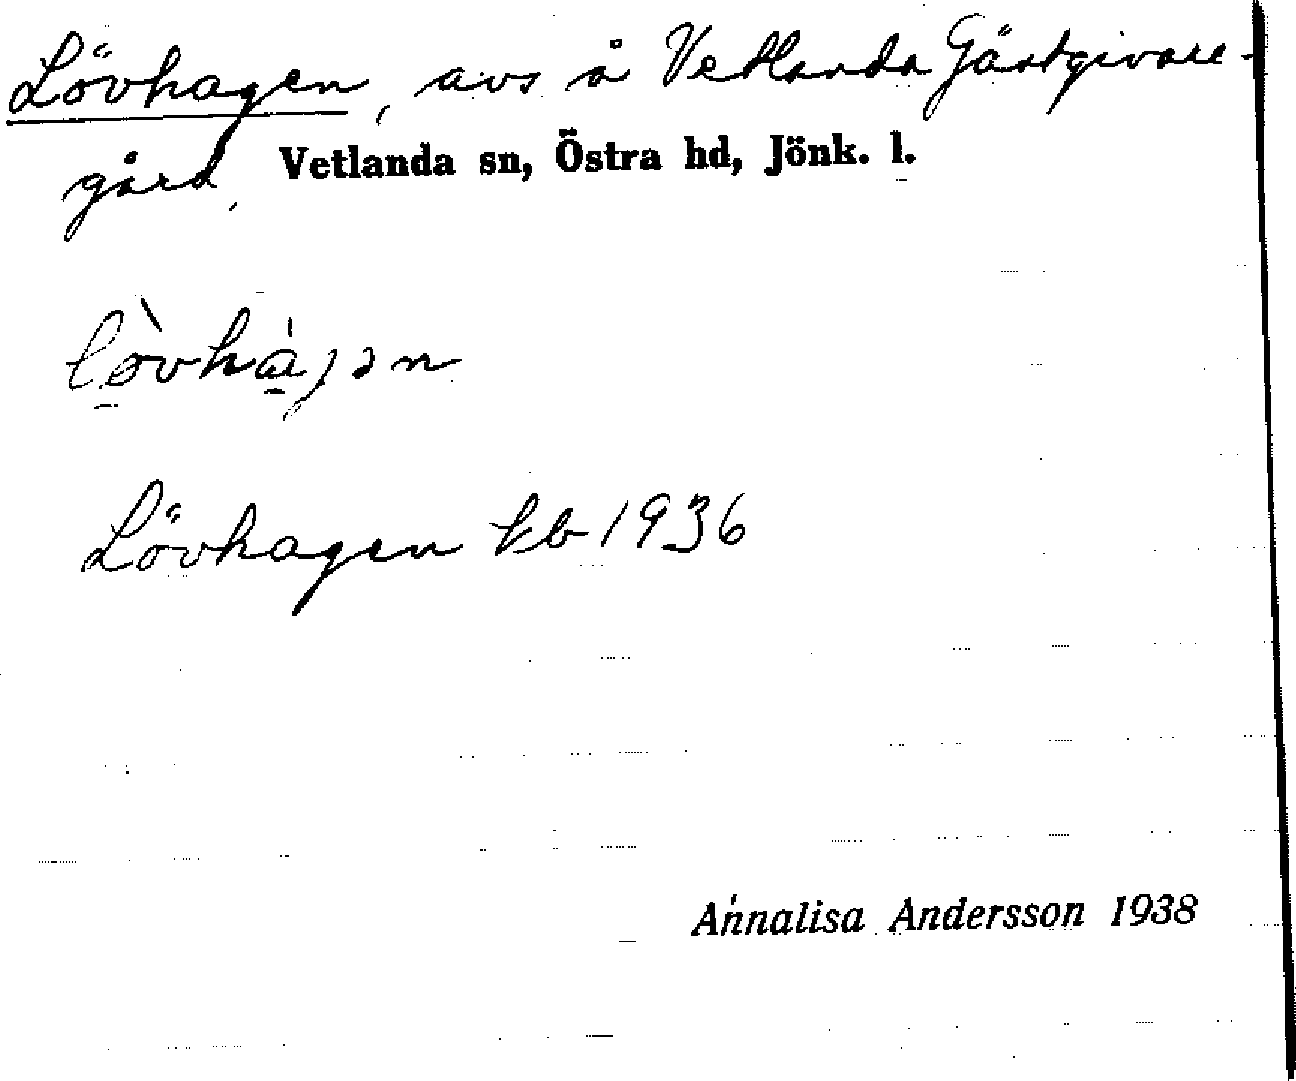 Lövhagen, avs å Vetlanda Gästgivare-
gård, Vetlanda sn, Östra hd, Jönk. l.
lö̀vhá̱gən
Lövhagen kb 1936
Annalisa Andersson 1938